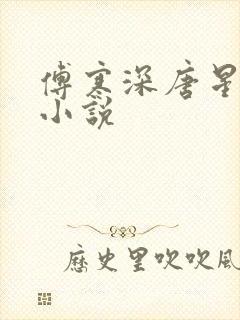 傅寒深唐星
小説
歷史里吹吹風